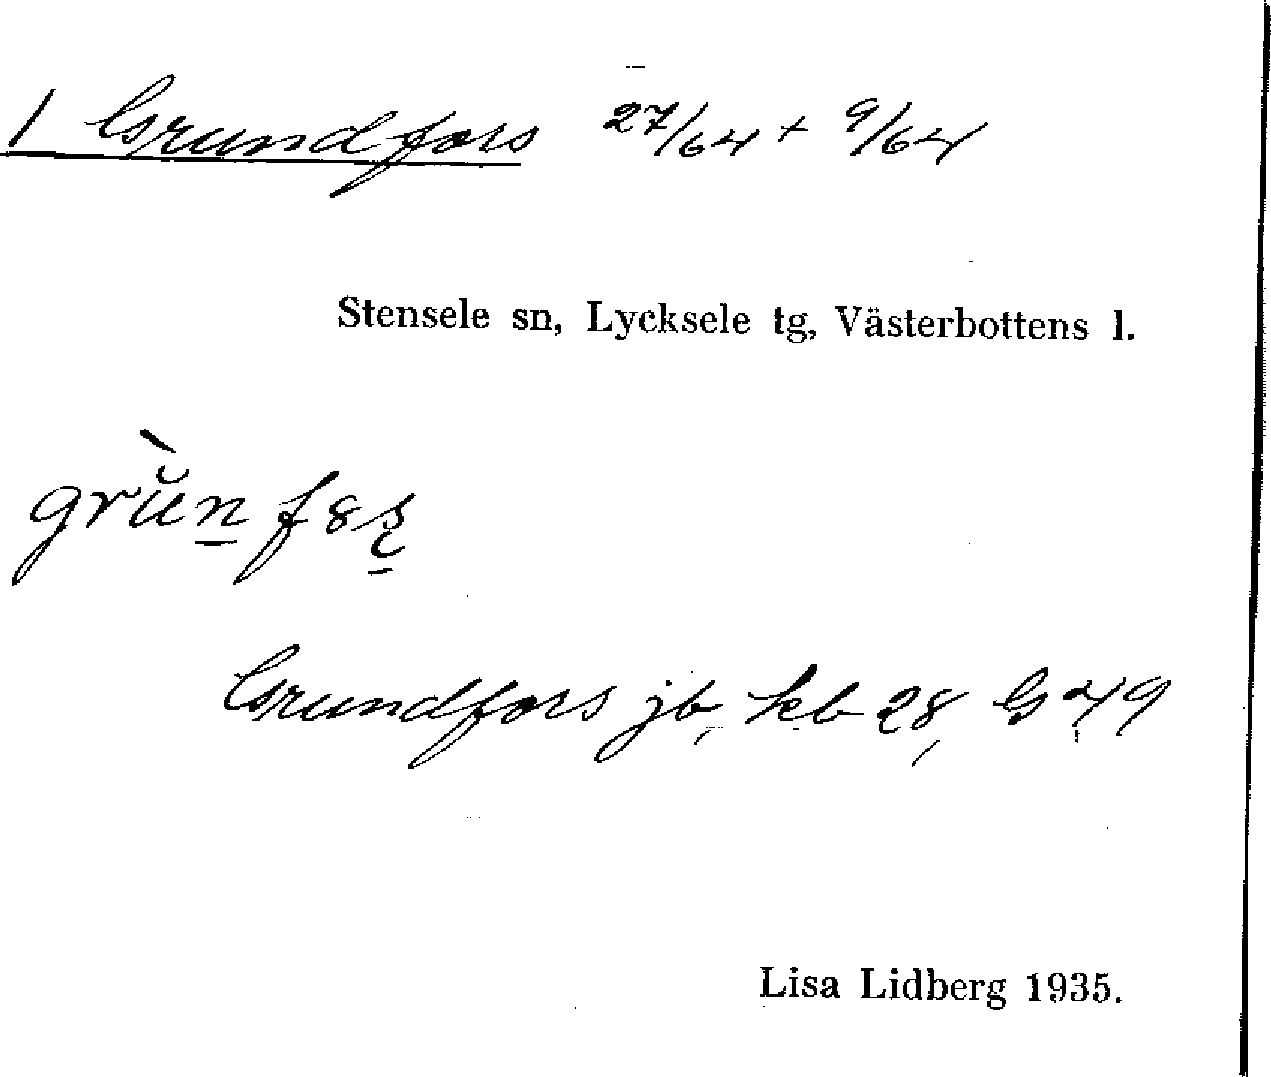 1 Grundfors 27/64 + 9/64
Stensele sn, Lycksele tg, Västerbottens l.
Grundfors jb, kb 28, G 49
Lisa Lidberg 1935.